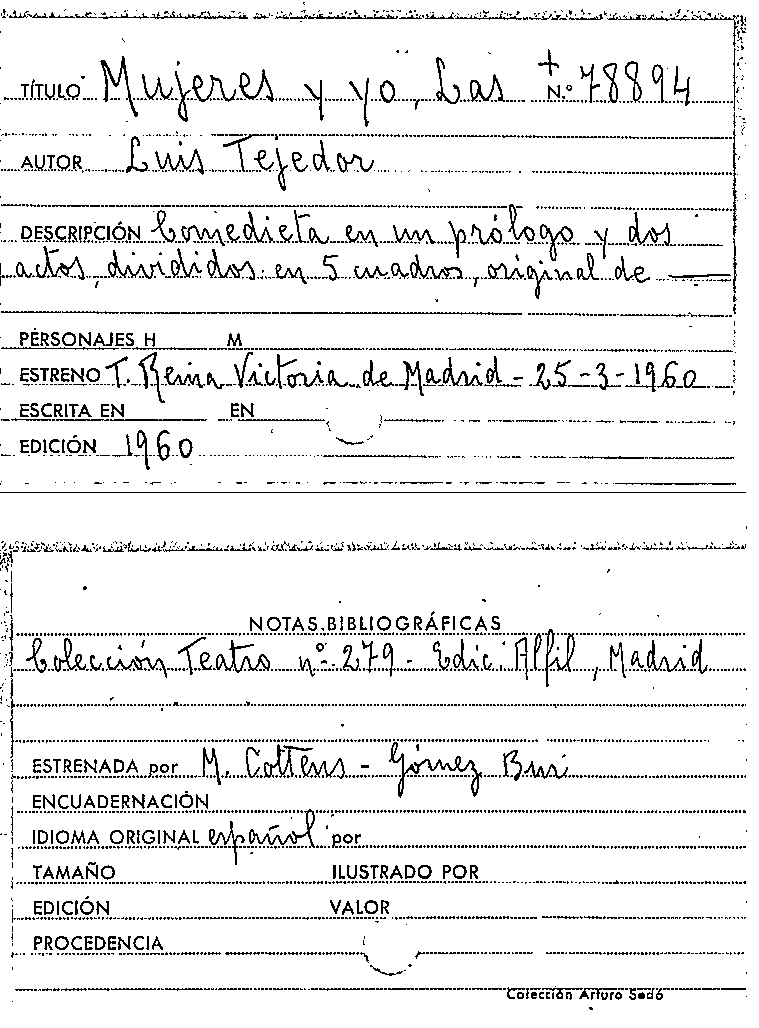 TÍTULO Mujeres y yo, Las + N.º 78894
AUTOR Luis Tejedor
DESCRIPCIÓN Comedieta en un prólogo y dos
actos, divididos en 5 cuadros, original de —
PERSONAJES H M
ESTRENO T. Reina Victoria de Madrid - 25-3-1960
ESCRITA EN EN
EDICIÓN 1960
NOTAS BIBLIOGRÁFICAS
Colección Teatro nº 279 - Edic. Alfil, Madrid
ESTRENADA por M. Cottens - Gómez Bur
ENCUADERNACIÓN
IDIOMA ORIGINAL español por
TAMAÑO ILUSTRADO POR
EDICIÓN VALOR
PROCEDENCIA
Colección Arturo Sedó